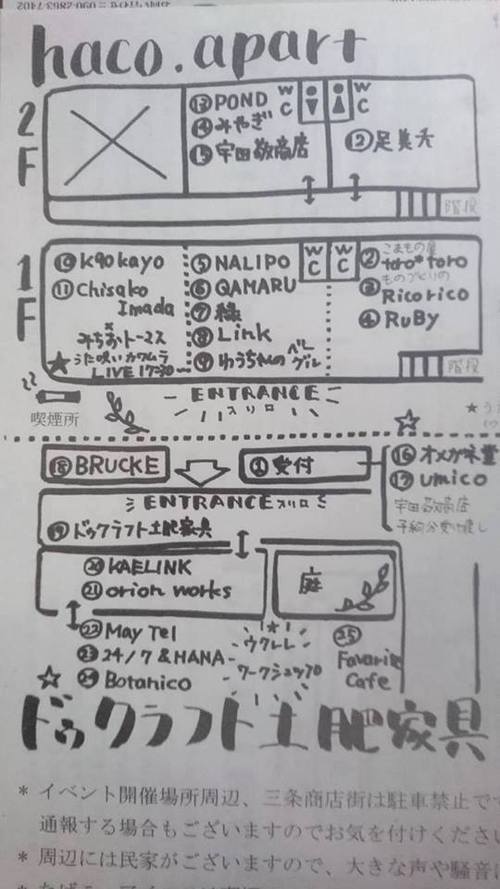 haco.apart
2F
⑬POND
⑭みやぎ
⑮宇田敬商店
WC
WC
1F
⑩kqokayo
⑪Chisako
Imada
みちお×トーマス
★うた唄いカワムラ
LIVE 17:30～
⑤NALIPO
⑥QAMARU
⑦緑
⑧Link
⑨ゆうちゃんのベーグル
WC
WC
②こまもの屋
toro*toro
③ものづくりの
Ricorico
④RuBy
階段
階段
喫煙所
ENTRANCE
入り口
⑱BRUCKE
①受付
⑯オメガネ堂
⑰umico
宇田敬商店
予約分受け渡し
ENTRANCE入り口
⑲ドゥクラフト土肥家具
⑳KAELINK
㉑orion works
庭
㉒May Tel
㉓24/7&HANA
㉔Botanico
ウクレレ
ワークショップ
㉕
Favorite
Cafe
ドゥクラフト土肥家具
＊イベント開催場所周辺、三条商店街は駐車禁止で
通報する場合もございますのでお気を付けくださ
＊周辺には民家がございますので、大きな声や騒音